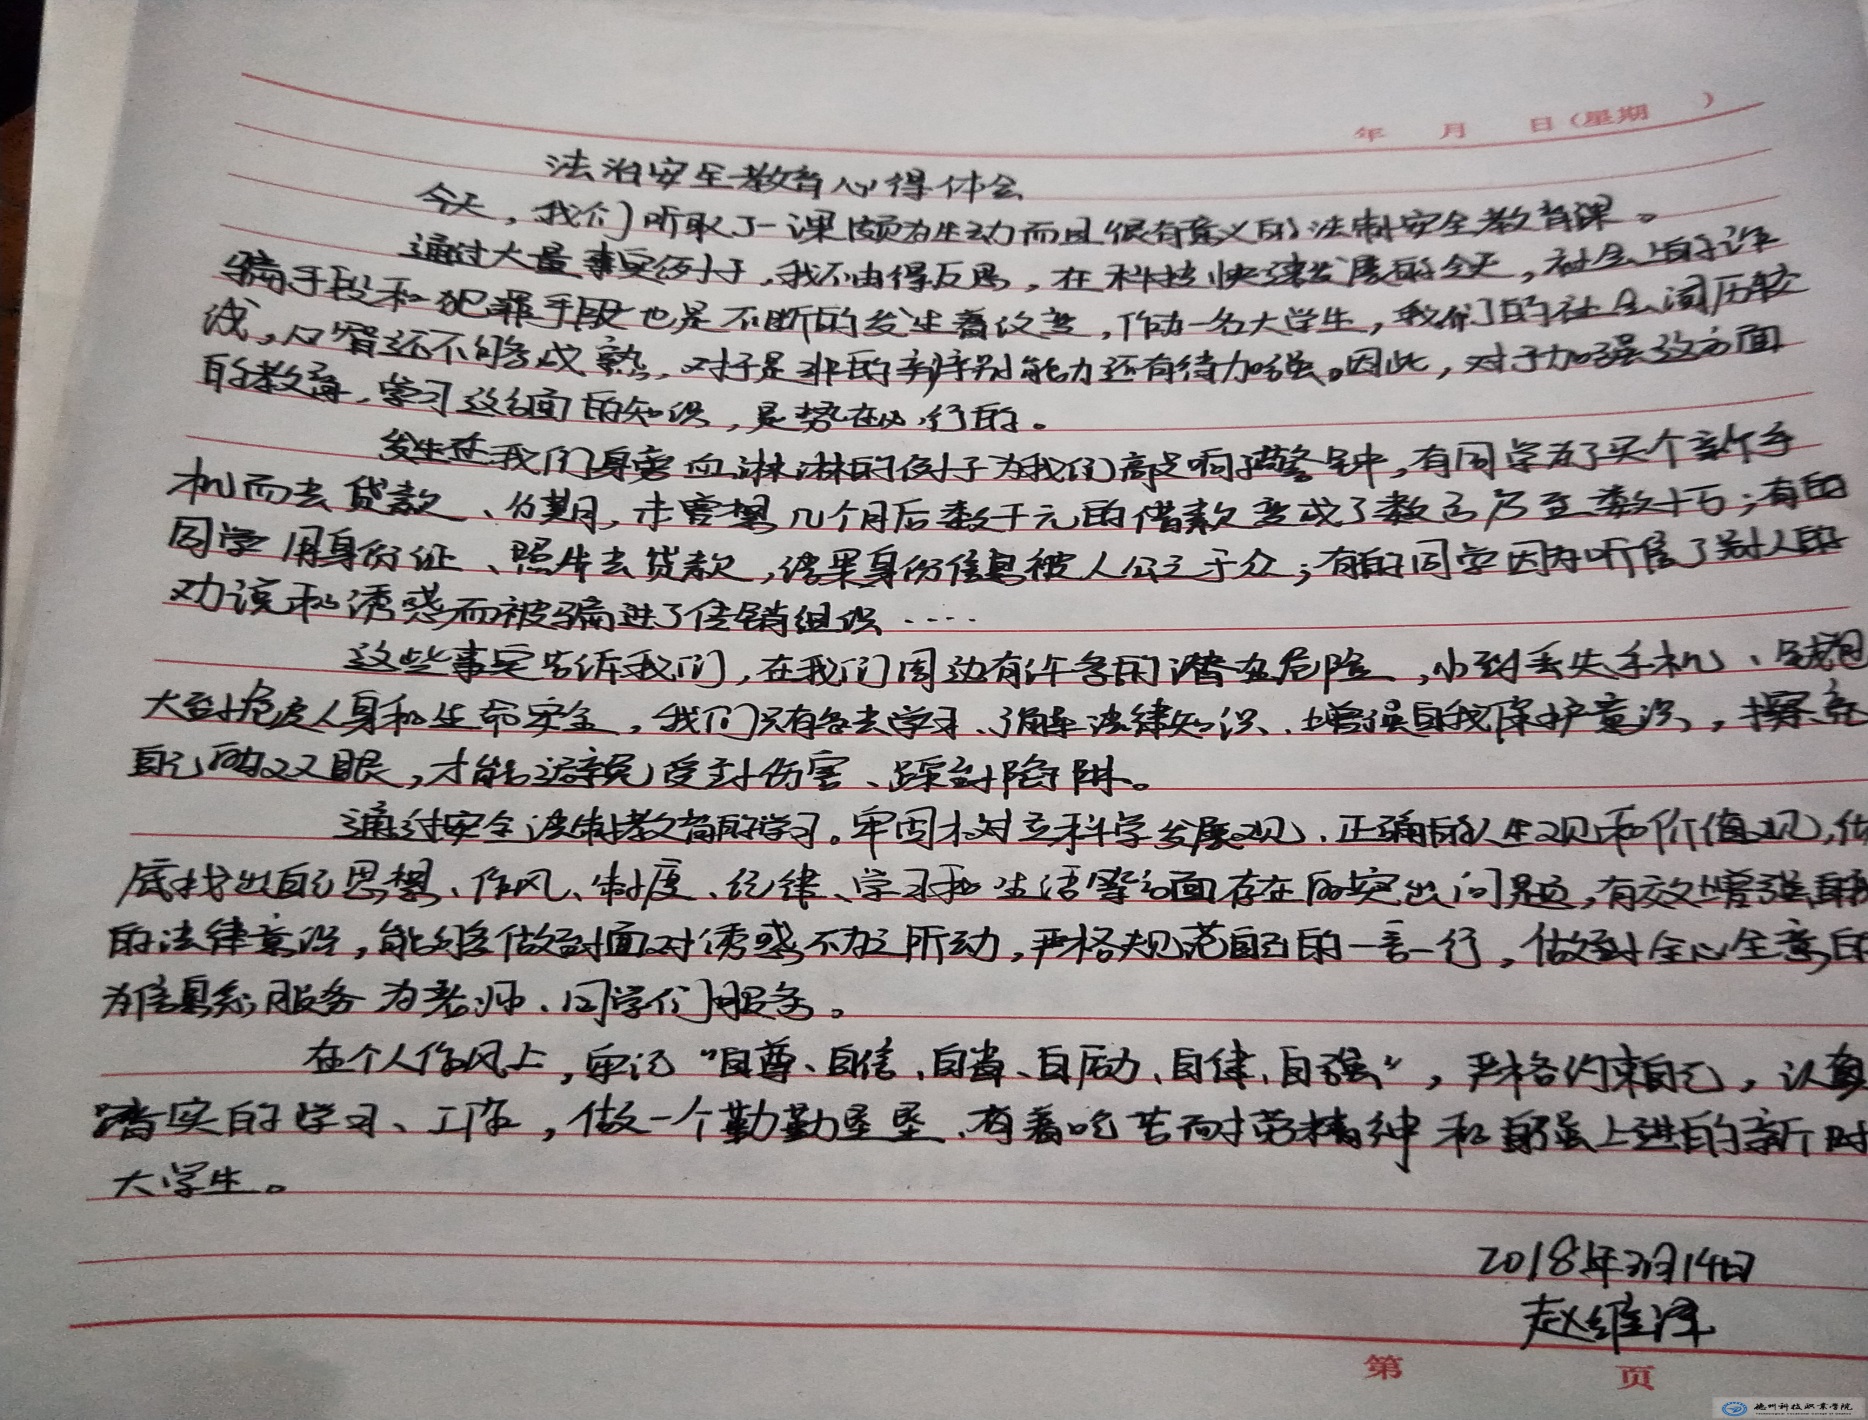 年 月 日（星期 ）
法治安全教育心得体会
今天，我们听取了一课颇为生动而且很有意义的法制安全教育课。
通过大量事实例子，我不由得反思，在科技快速发展的今天，社会上的诈
骗手段和犯罪手段也是不断的发生着改变，作为一名大学生，我们的社会阅历较
浅，心智还不够成熟，对于是非的辨别能力还有待加强。因此，对于加强这方面
的教育，学习这方面的知识，是势在必行的。
发生在我们身旁血淋淋的例子为我们敲响了警钟，有同学为了买个新手
机而去贷款、分期，未曾想几个月后数千元的借款变成了数万乃至数十万；有的
同学用身份证、照片去贷款，结果身份信息被人公之于众；有的同学因为听信了别人的
劝说和诱惑而被骗进了传销组织····
这些事实告诉我们，在我们周边有许多的潜在危险，小到丢失手机、钱包
大到危及人身和生命安全，我们只有多去学习、了解法律知识、增强自我保护意识，擦亮
自己的双眼，才能避免受到伤害、踩到陷阱。
通过安全法制教育的学习。牢固树立科学发展观、正确的人生观和价值观，彻
底找出自己思想、作风、制度、纪律、学习和生活等方面存在的突出问题，有效增强自我
的法律意识，能够做到面对诱惑不为之所动，严格规范自己的一言一行，做到全心全意的
为信息系服务为老师、同学们服务。
在个人作风上，牢记“自尊、自信、自省、自励、自律、自强”，严格约束自己，认真
踏实的学习、工作，做一个勤勤垦垦、有着吃苦耐劳精神和自强上进的新时
大学生。
2018年3月14日
赵维泽
第 页
德州科技职业学院